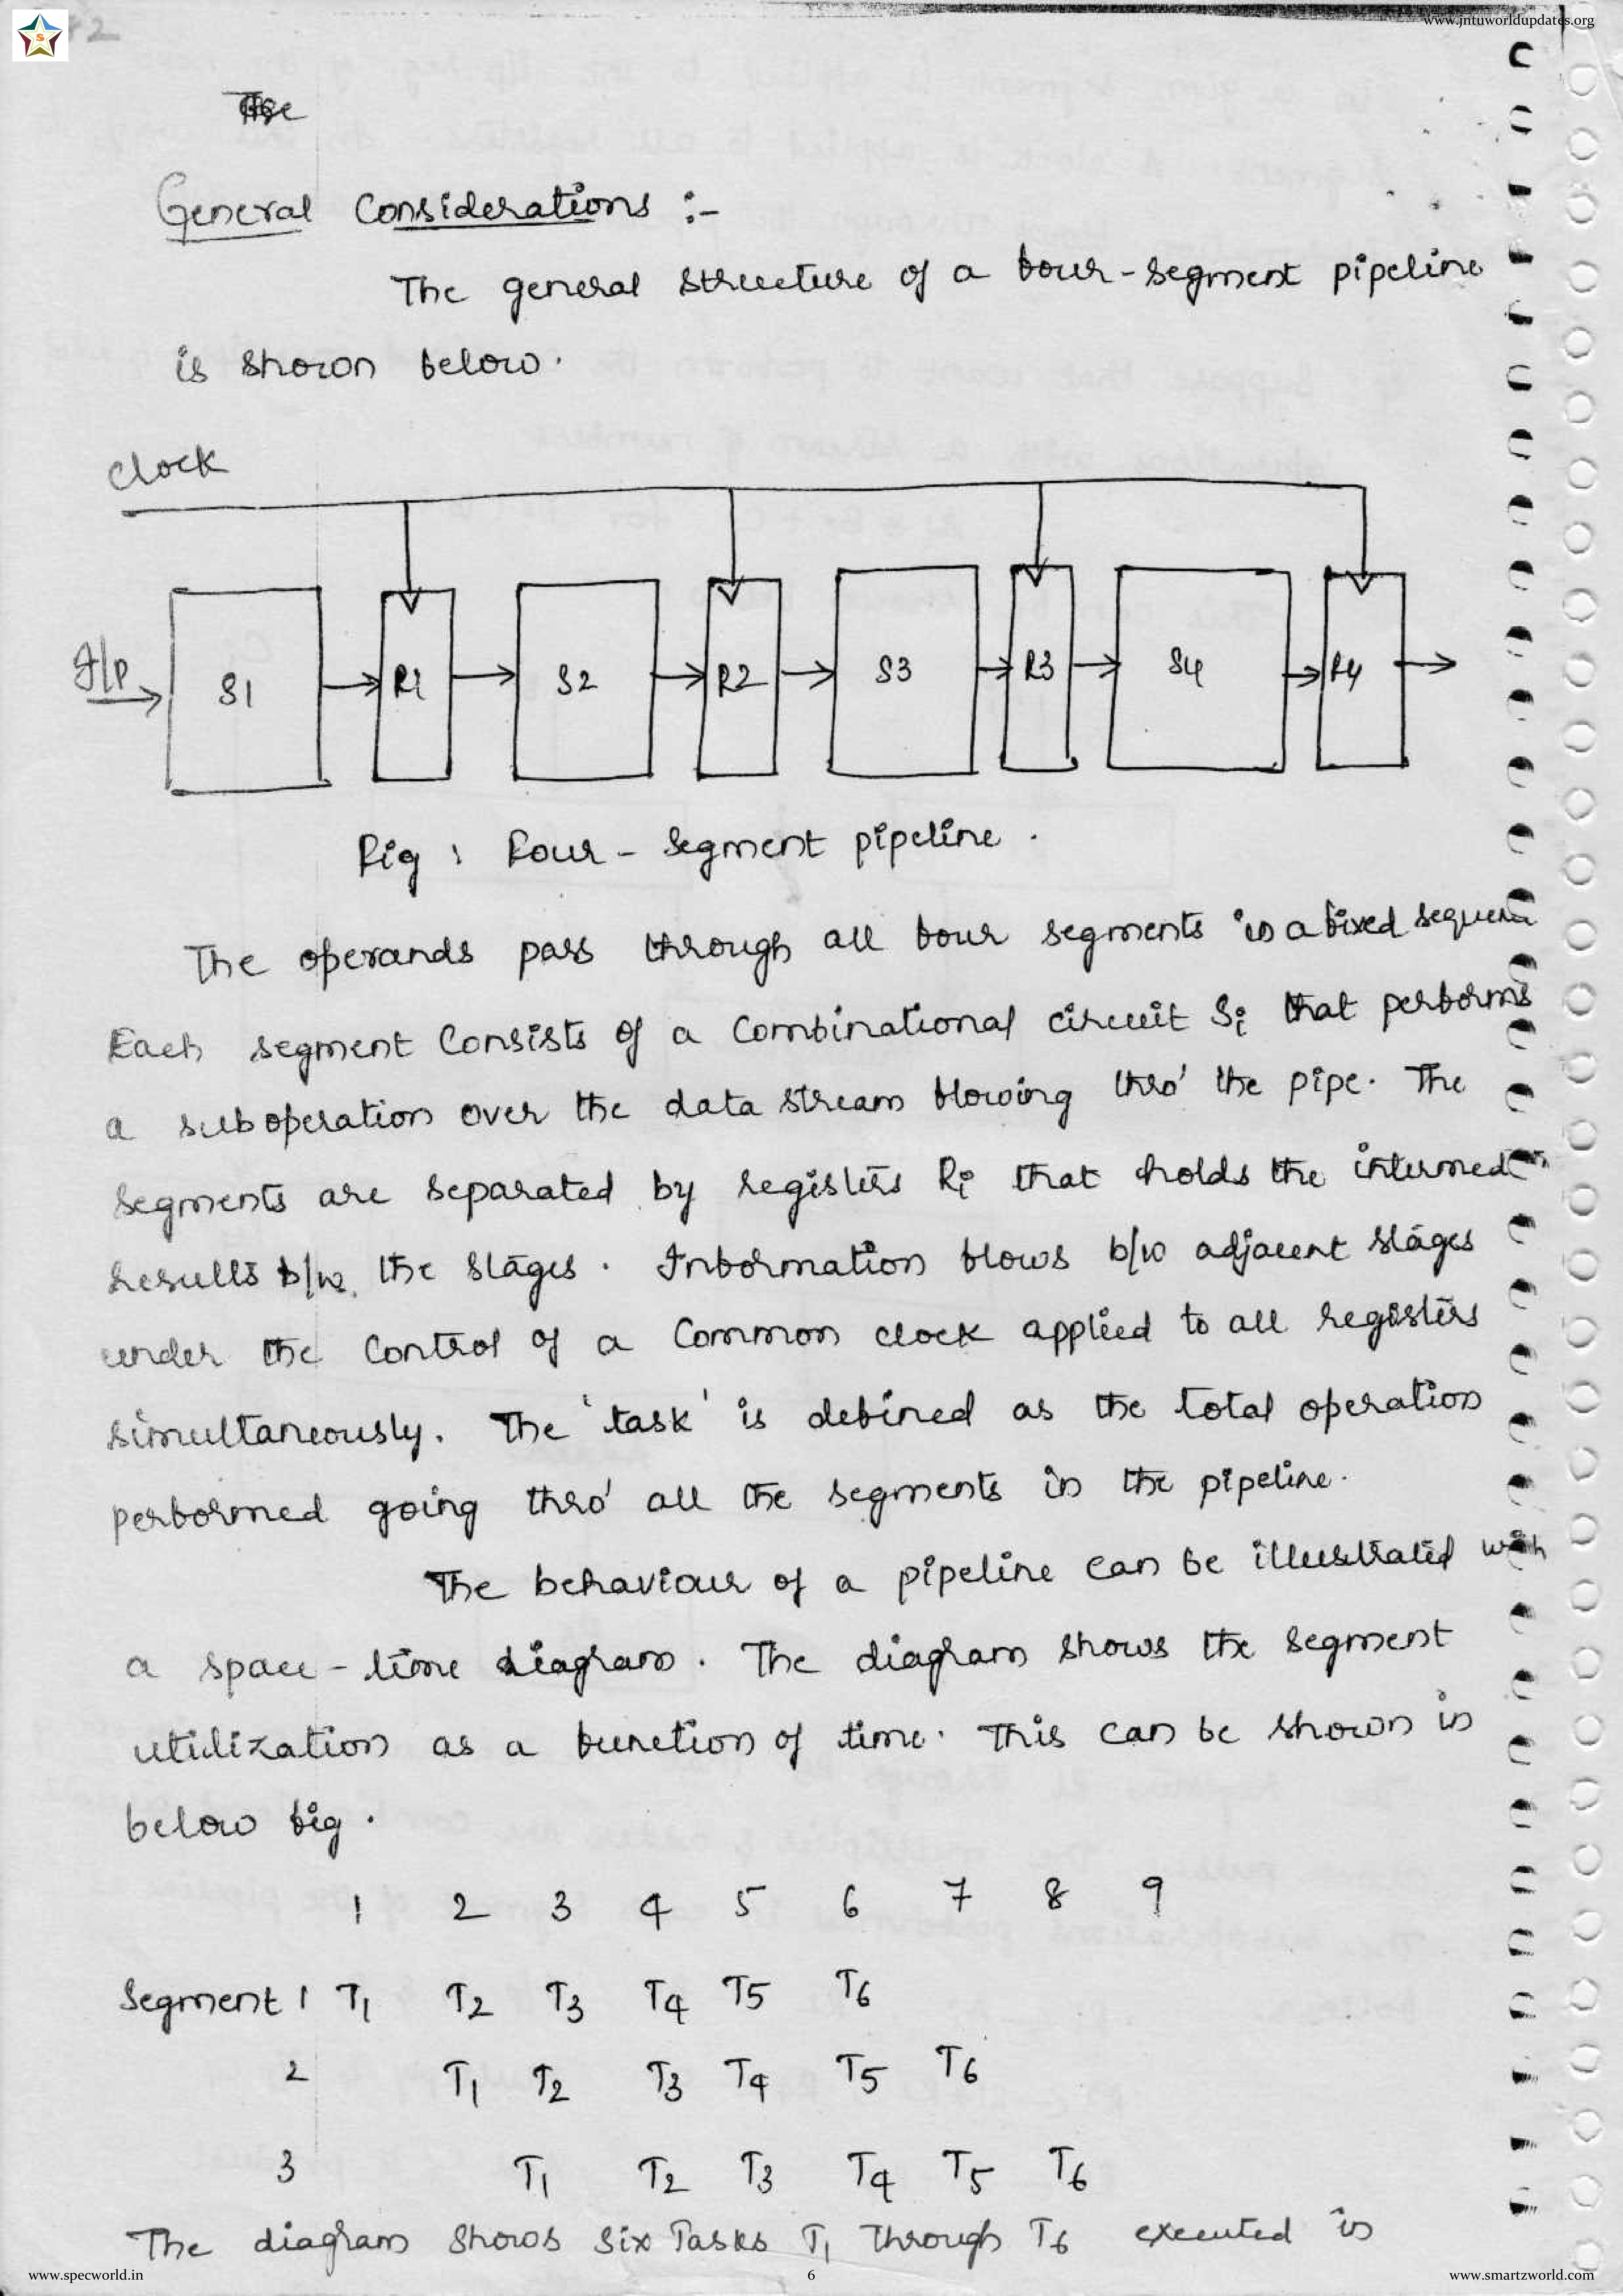 www.jntuworldupdates.org
S
2
The
General Considerations :-
The general structure of a four-segment pipeline
is shown below.
clock
I/P S1 R1 S2 R2 S3 R3 S4 R4
Fig : Four-segment pipeline.
The operands pass through all four segments in a fixed sequen
Each segment consists of a combinational circuit Si that performs
a suboperation over the data stream flowing thro' the pipe. The
segments are separated by registers Ri that holds the intermed
results b/w the stages. Information flows b/w adjacent stages
under the control of a common clock applied to all registers
simultaneously. The 'task' is defined as the total operation
performed going thro' all the segments in the pipeline.
The behaviour of a pipeline can be illustrated with
a space-time diagram. The diagram shows the segment
utilization as a function of time. This can be shown in
below fig.
1 2 3 4 5 6 7 8 9
Segment 1 T1 T2 T3 T4 T5 T6
2 T1 T2 T3 T4 T5 T6
3 T1 T2 T3 T4 T5 T6
The diagram shows six Tasks T1 through T6 executed in
www.specworld.in 6 www.smartzworld.com